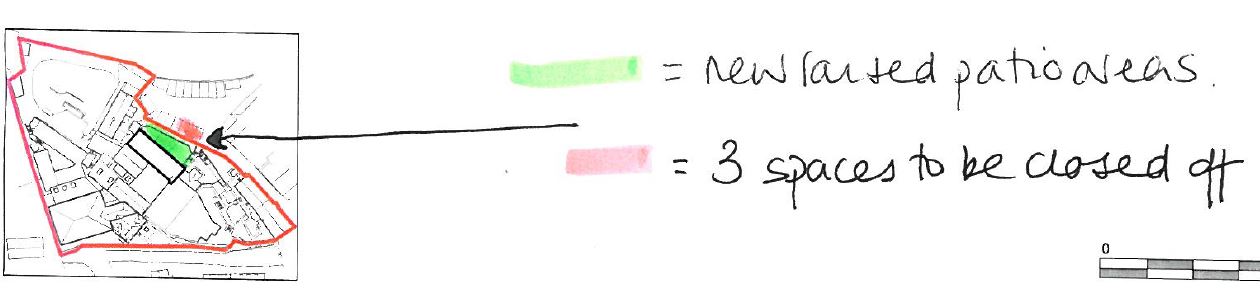 = new raised patio areas.
= 3 spaces to be closed off
0